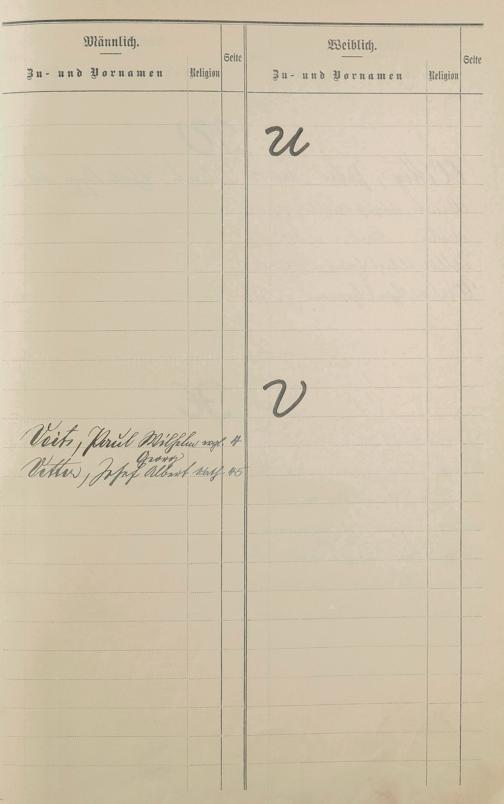 Männlich.
Zu- und Vornamen
Religion
Seite
Weiblich.
Zu- und Vornamen
Religion
Seite
U
V
Veits, Paul Wilhelm evgl. 4
Georg
Vetter, Josef Albert kath 45